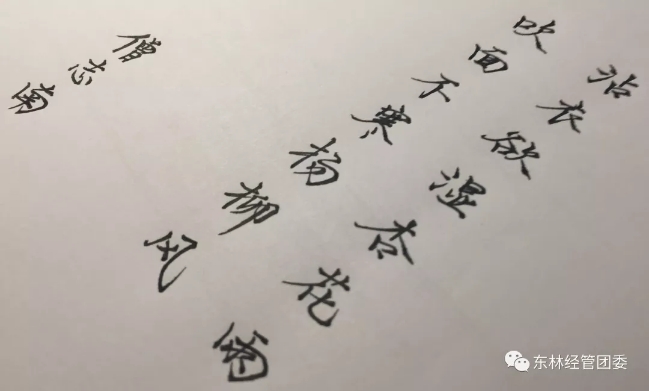 沾衣欲湿杏花雨
吹面不寒杨柳风
僧志南
东林经管团委